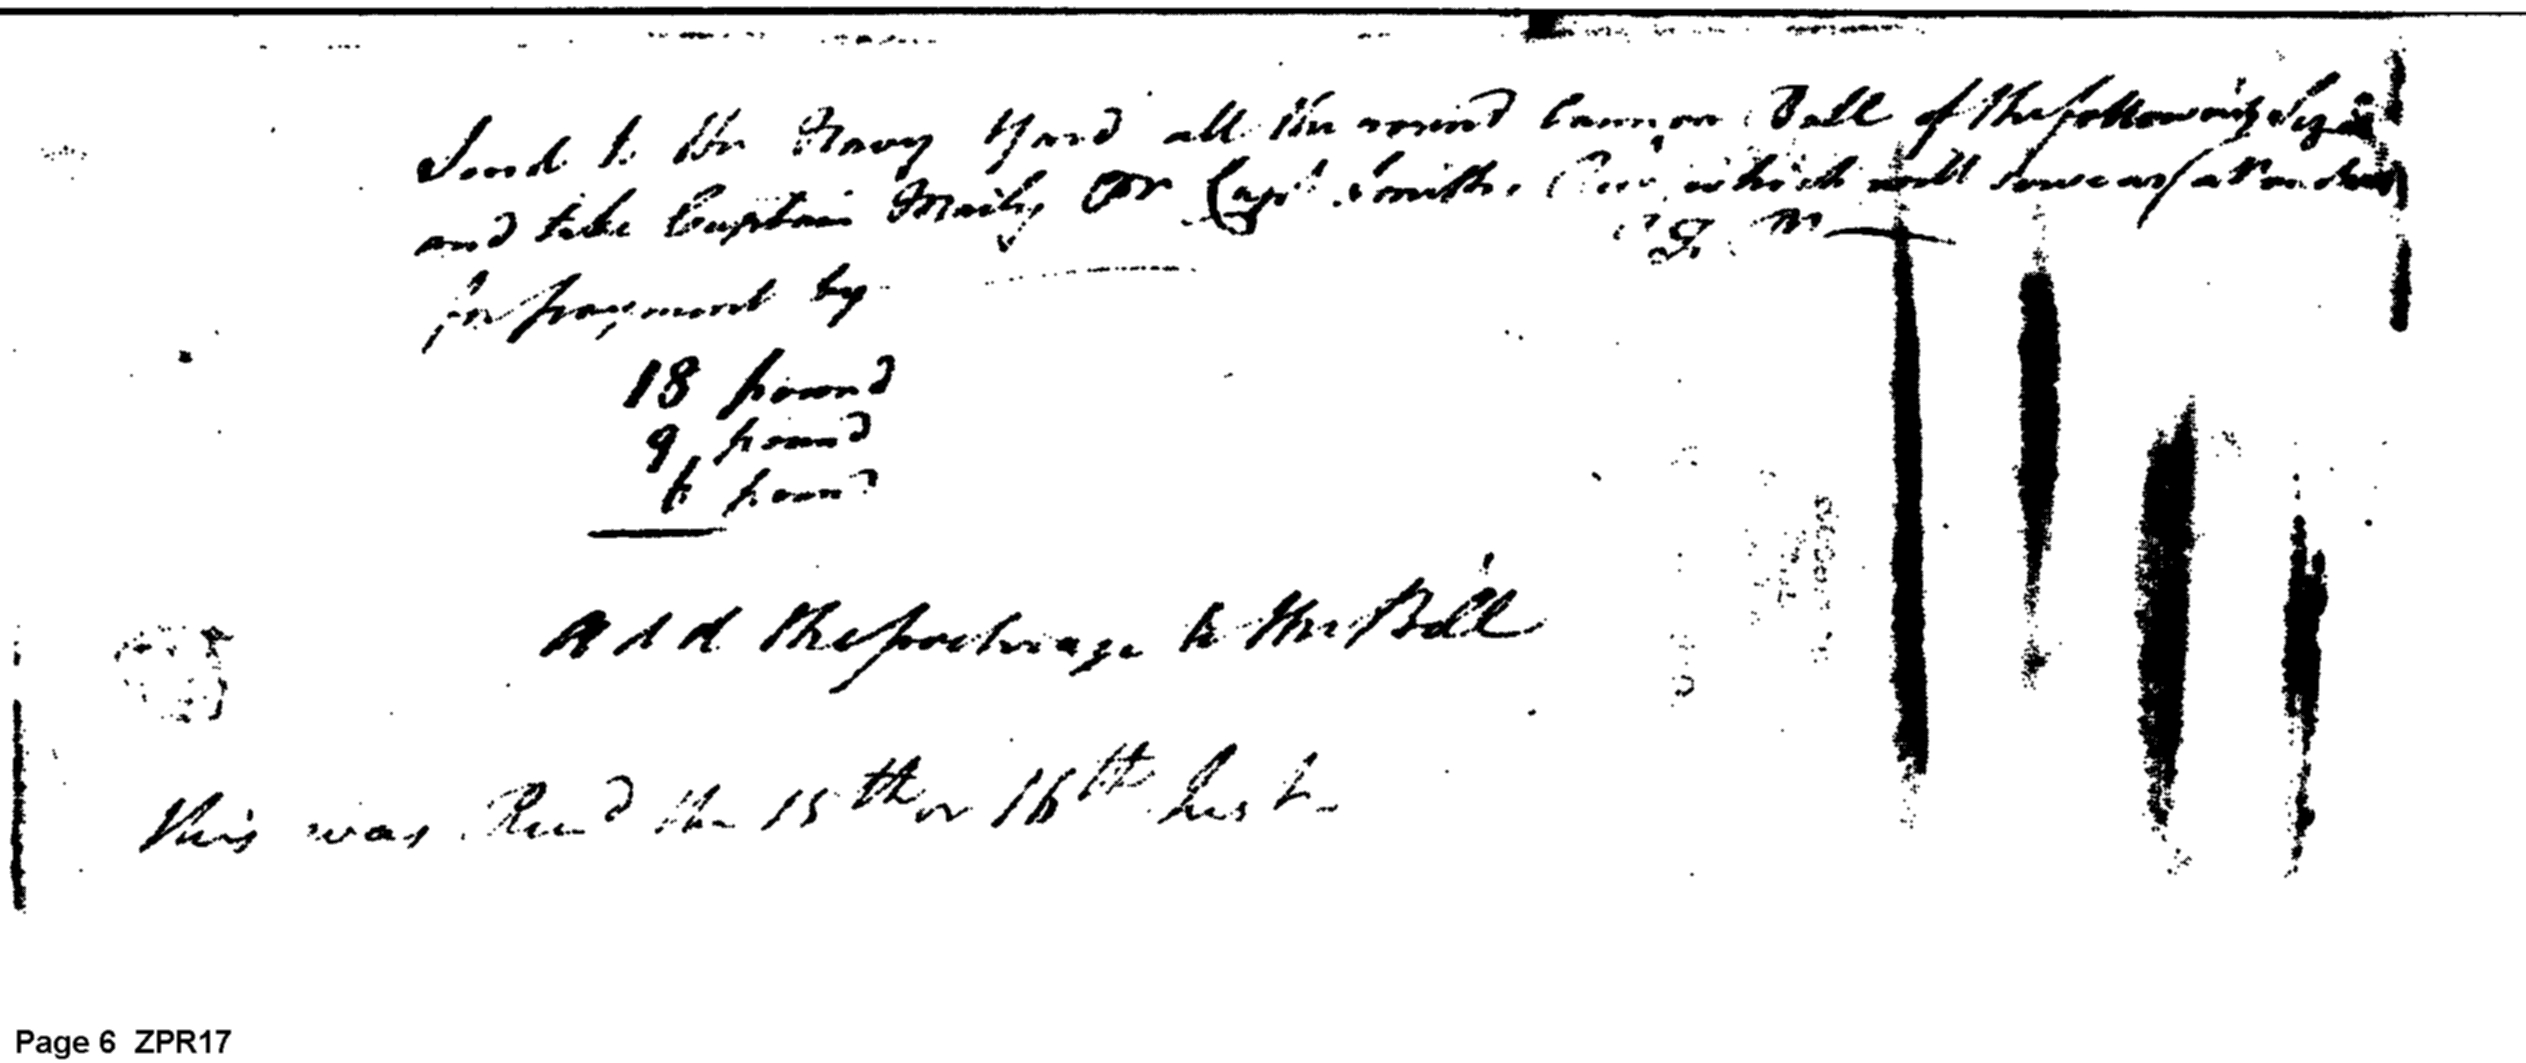 Send to the Navy Yard all the round Cannon Ball of the following Size
and take Captain or Capt Smiths which will
for payment by
18 pound
9 pound
6 pound
Add the porterage to the Bill
This was Recd the 15th or 16th Inst
Page 6 ZPR17